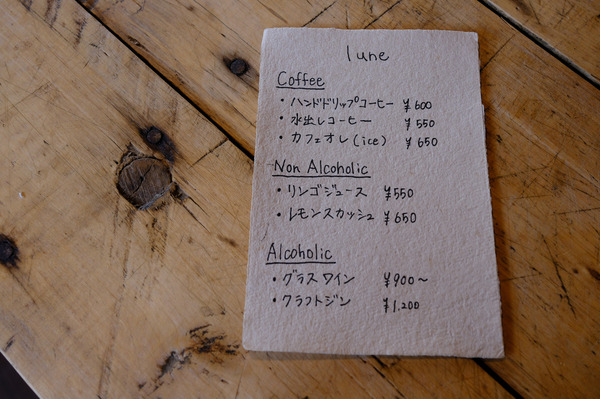 lune
Coffee
・ハンドドリップコーヒー ¥600
・水出しコーヒー ¥550
・カフェオレ(ice) ¥650
Non Alcoholic
・リンゴジュース ¥550
・レモンスカッシュ ¥650
Alcoholic
・グラスワイン ¥900〜
・クラフトジン ¥1,200